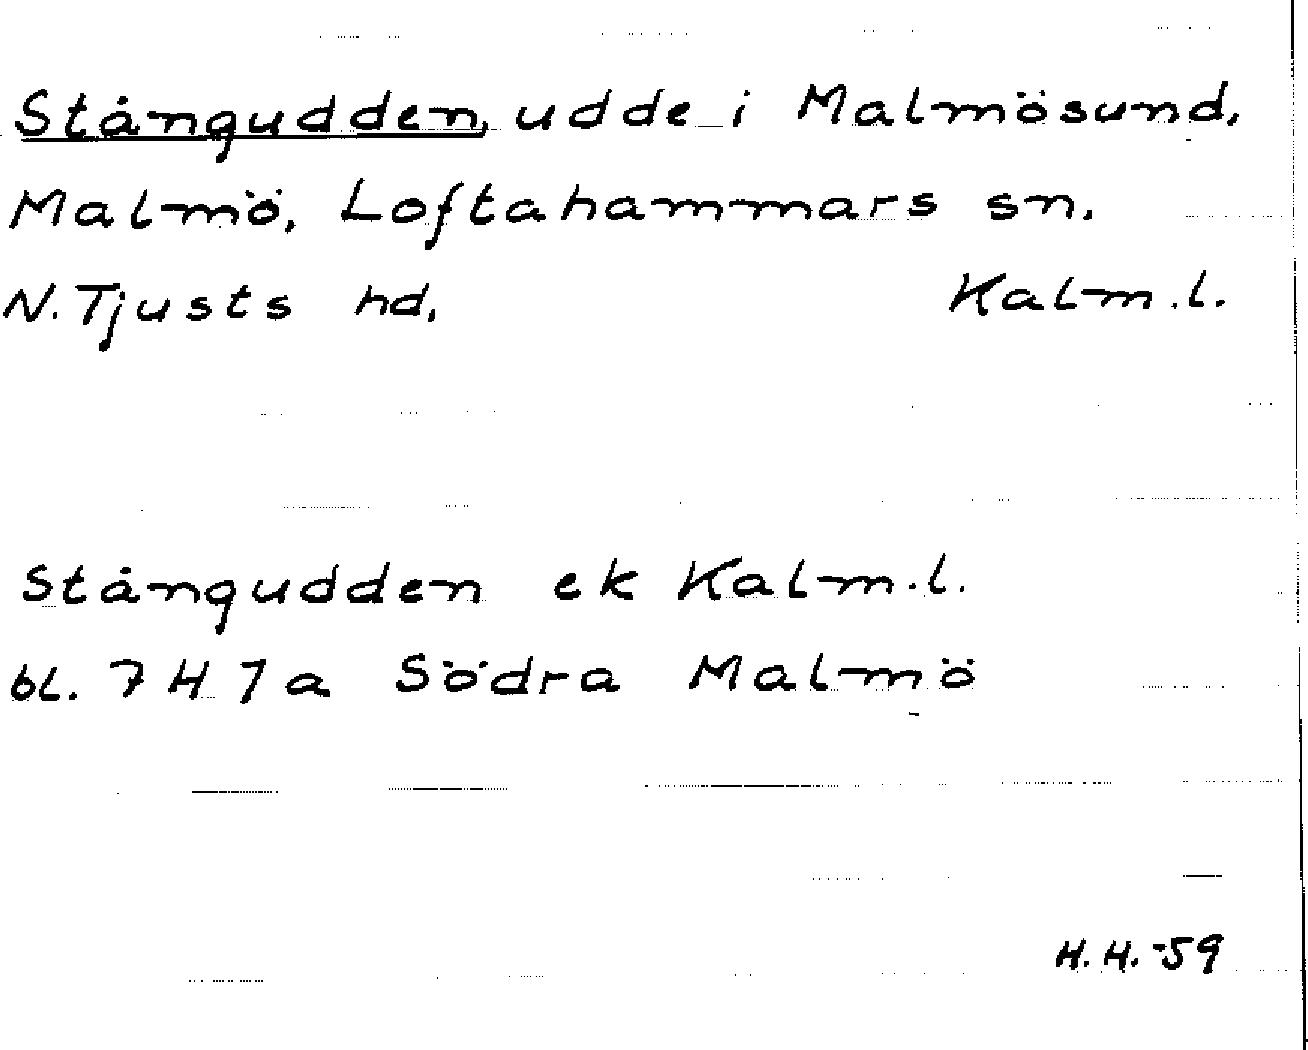 Stångudden, udde i Malmösund,
Malmö, Loftahammars sn.
N. Tjusts hd. Kalm.l.
Stångudden ek Kalm.l.
bl. 7 H 7 a Södra Malmö
H. H. -59